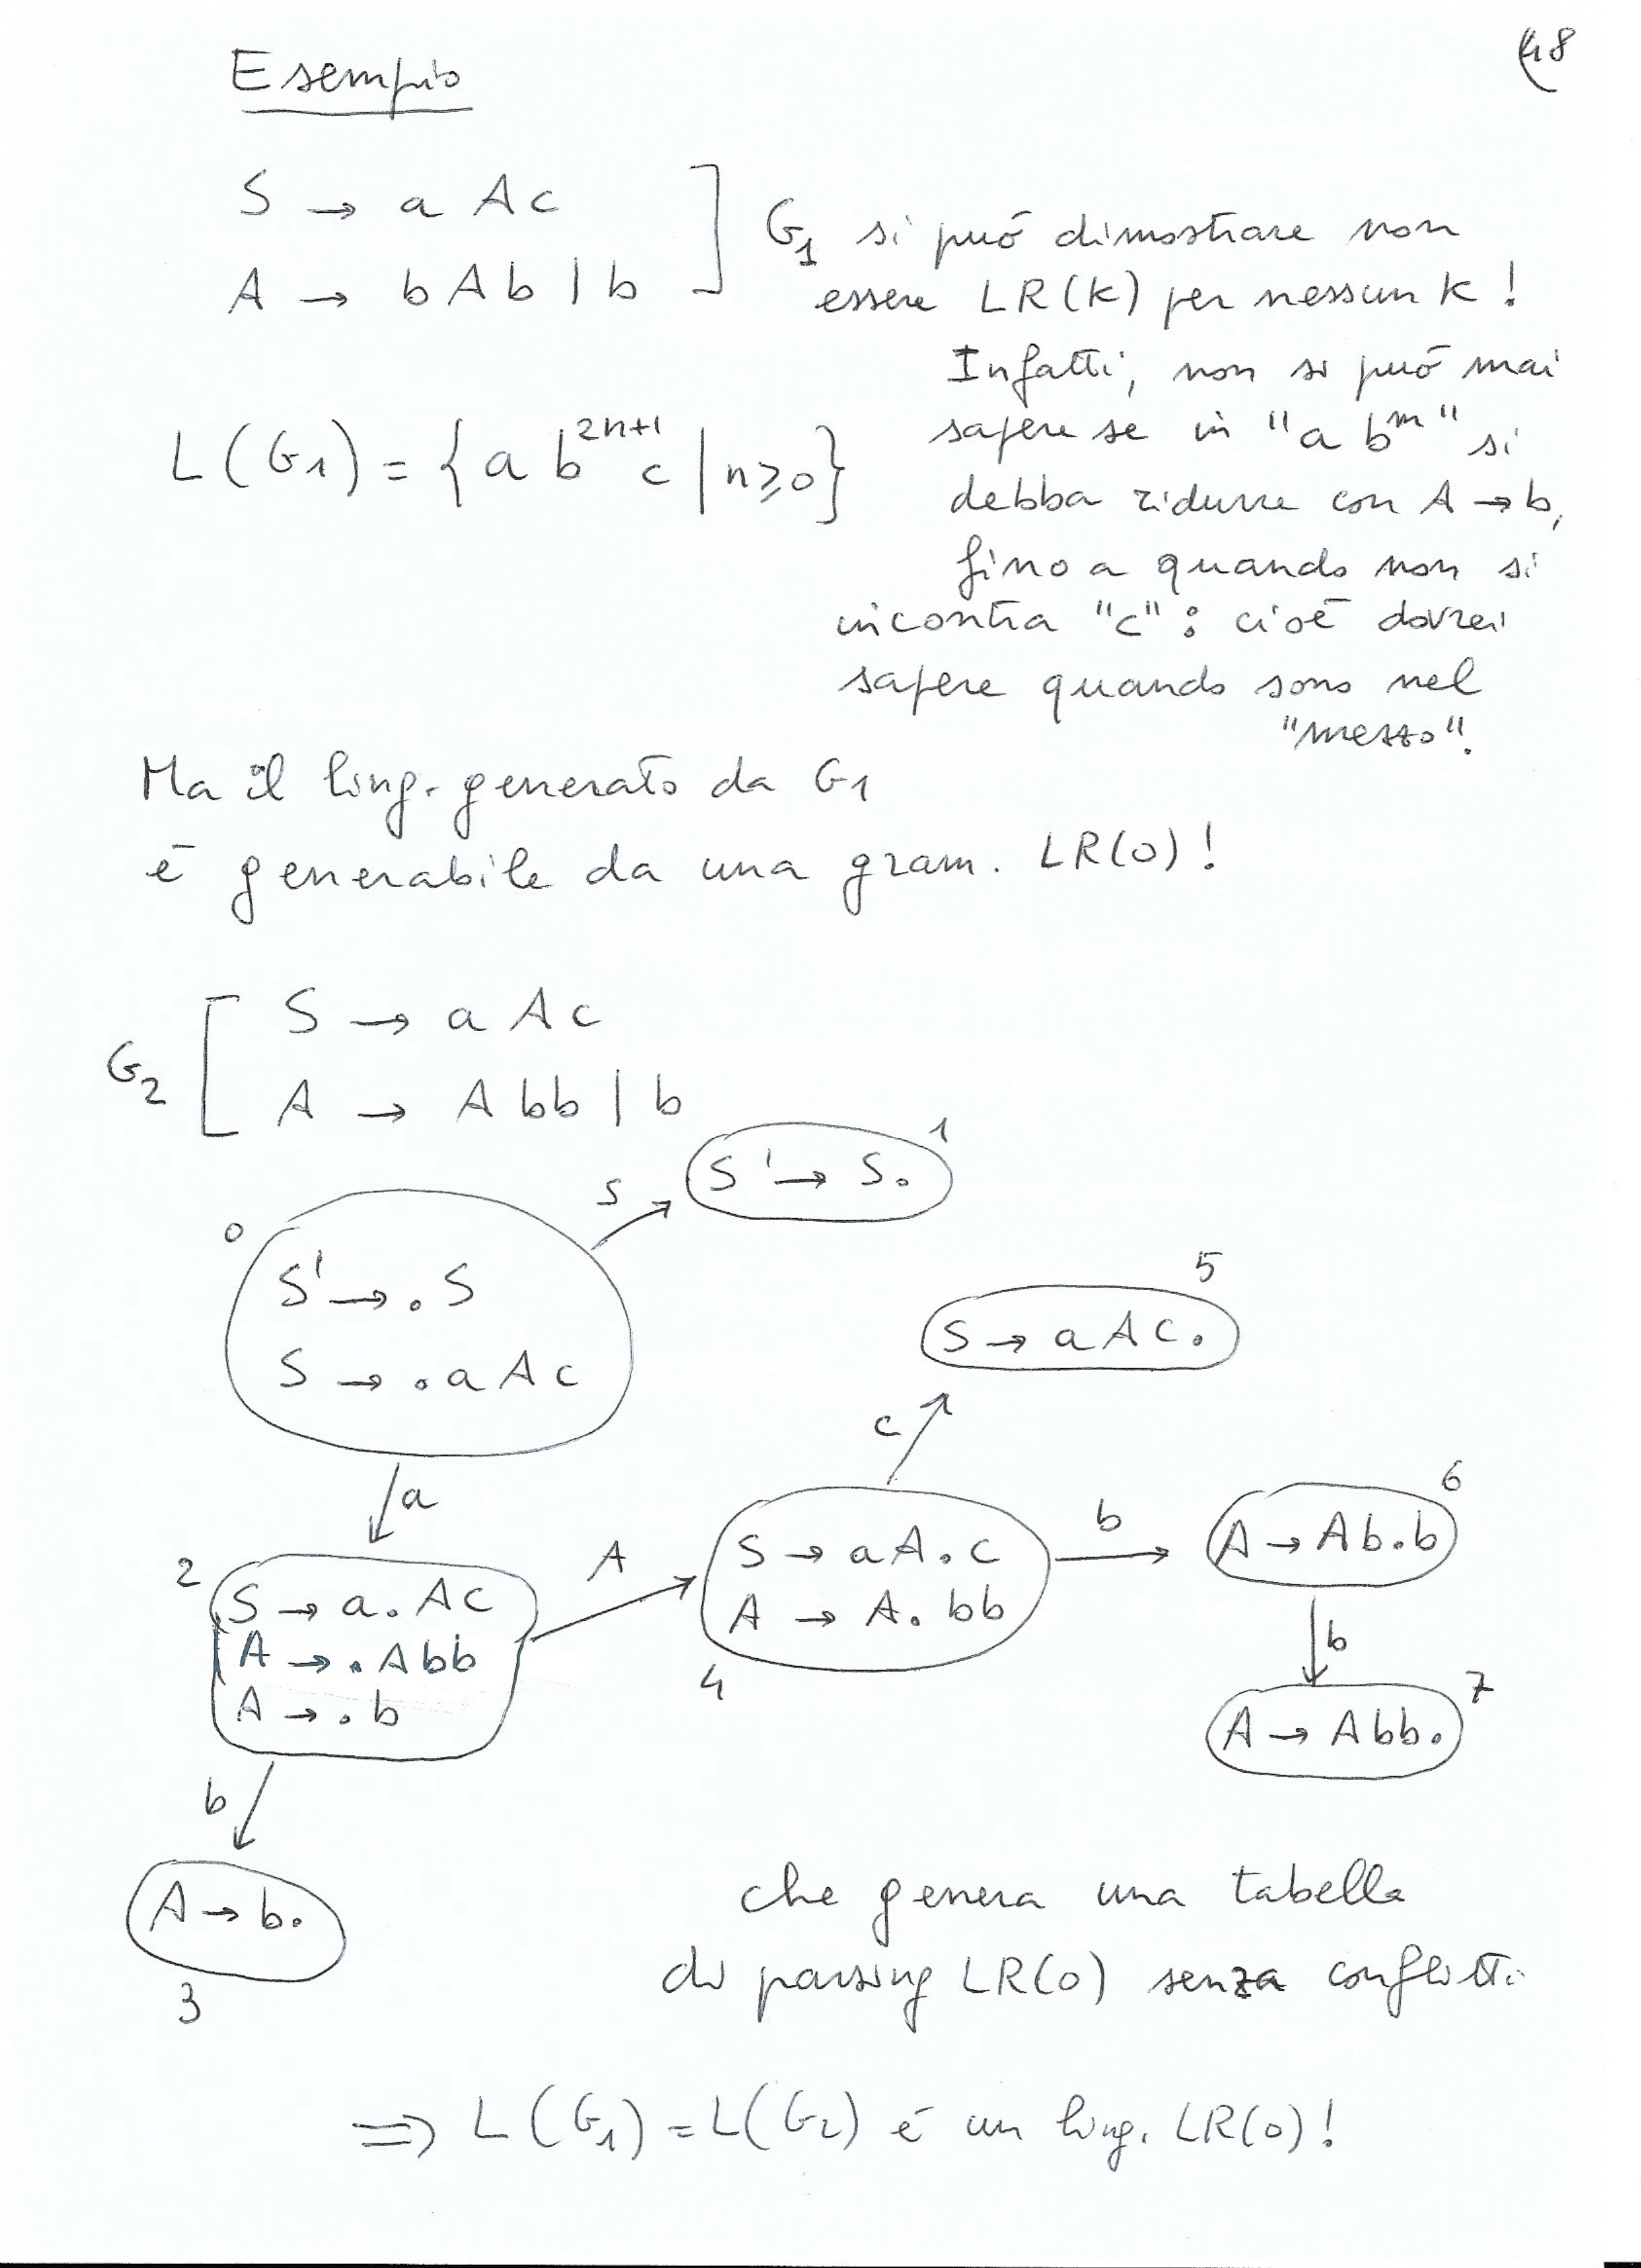 48
Esempio
S → a A c
A → b A b | b
G1 si può dimostrare non
essere LR(k) per nessun k !
Infatti, non si può mai
sapere se in "a b^m" si
debba ridurre con A → b,
fino a quando non si
incontra "c": cioè dovrei
sapere quando sono nel
"mezzo".
L(G1) = {a b^{2n+1} c | n ≥ 0}
Ma il ling. generato da G1
è generabile da una gram. LR(0)!
G2
S → a A c
A → A b b | b
0
S' → . S
S → . a A c
S
1
S' → S .
a
2
S → a . A c
A → . A b b
A → . b
b
A → b .
3
A
S → a A . c
A → A . b b
4
c
5
S → a A c .
b
6
A → A b . b
b
7
A → A b b .
che genera una tabella
di parsing LR(0) senza conflitti
⇒ L(G1) = L(G2) è un ling. LR(0)!